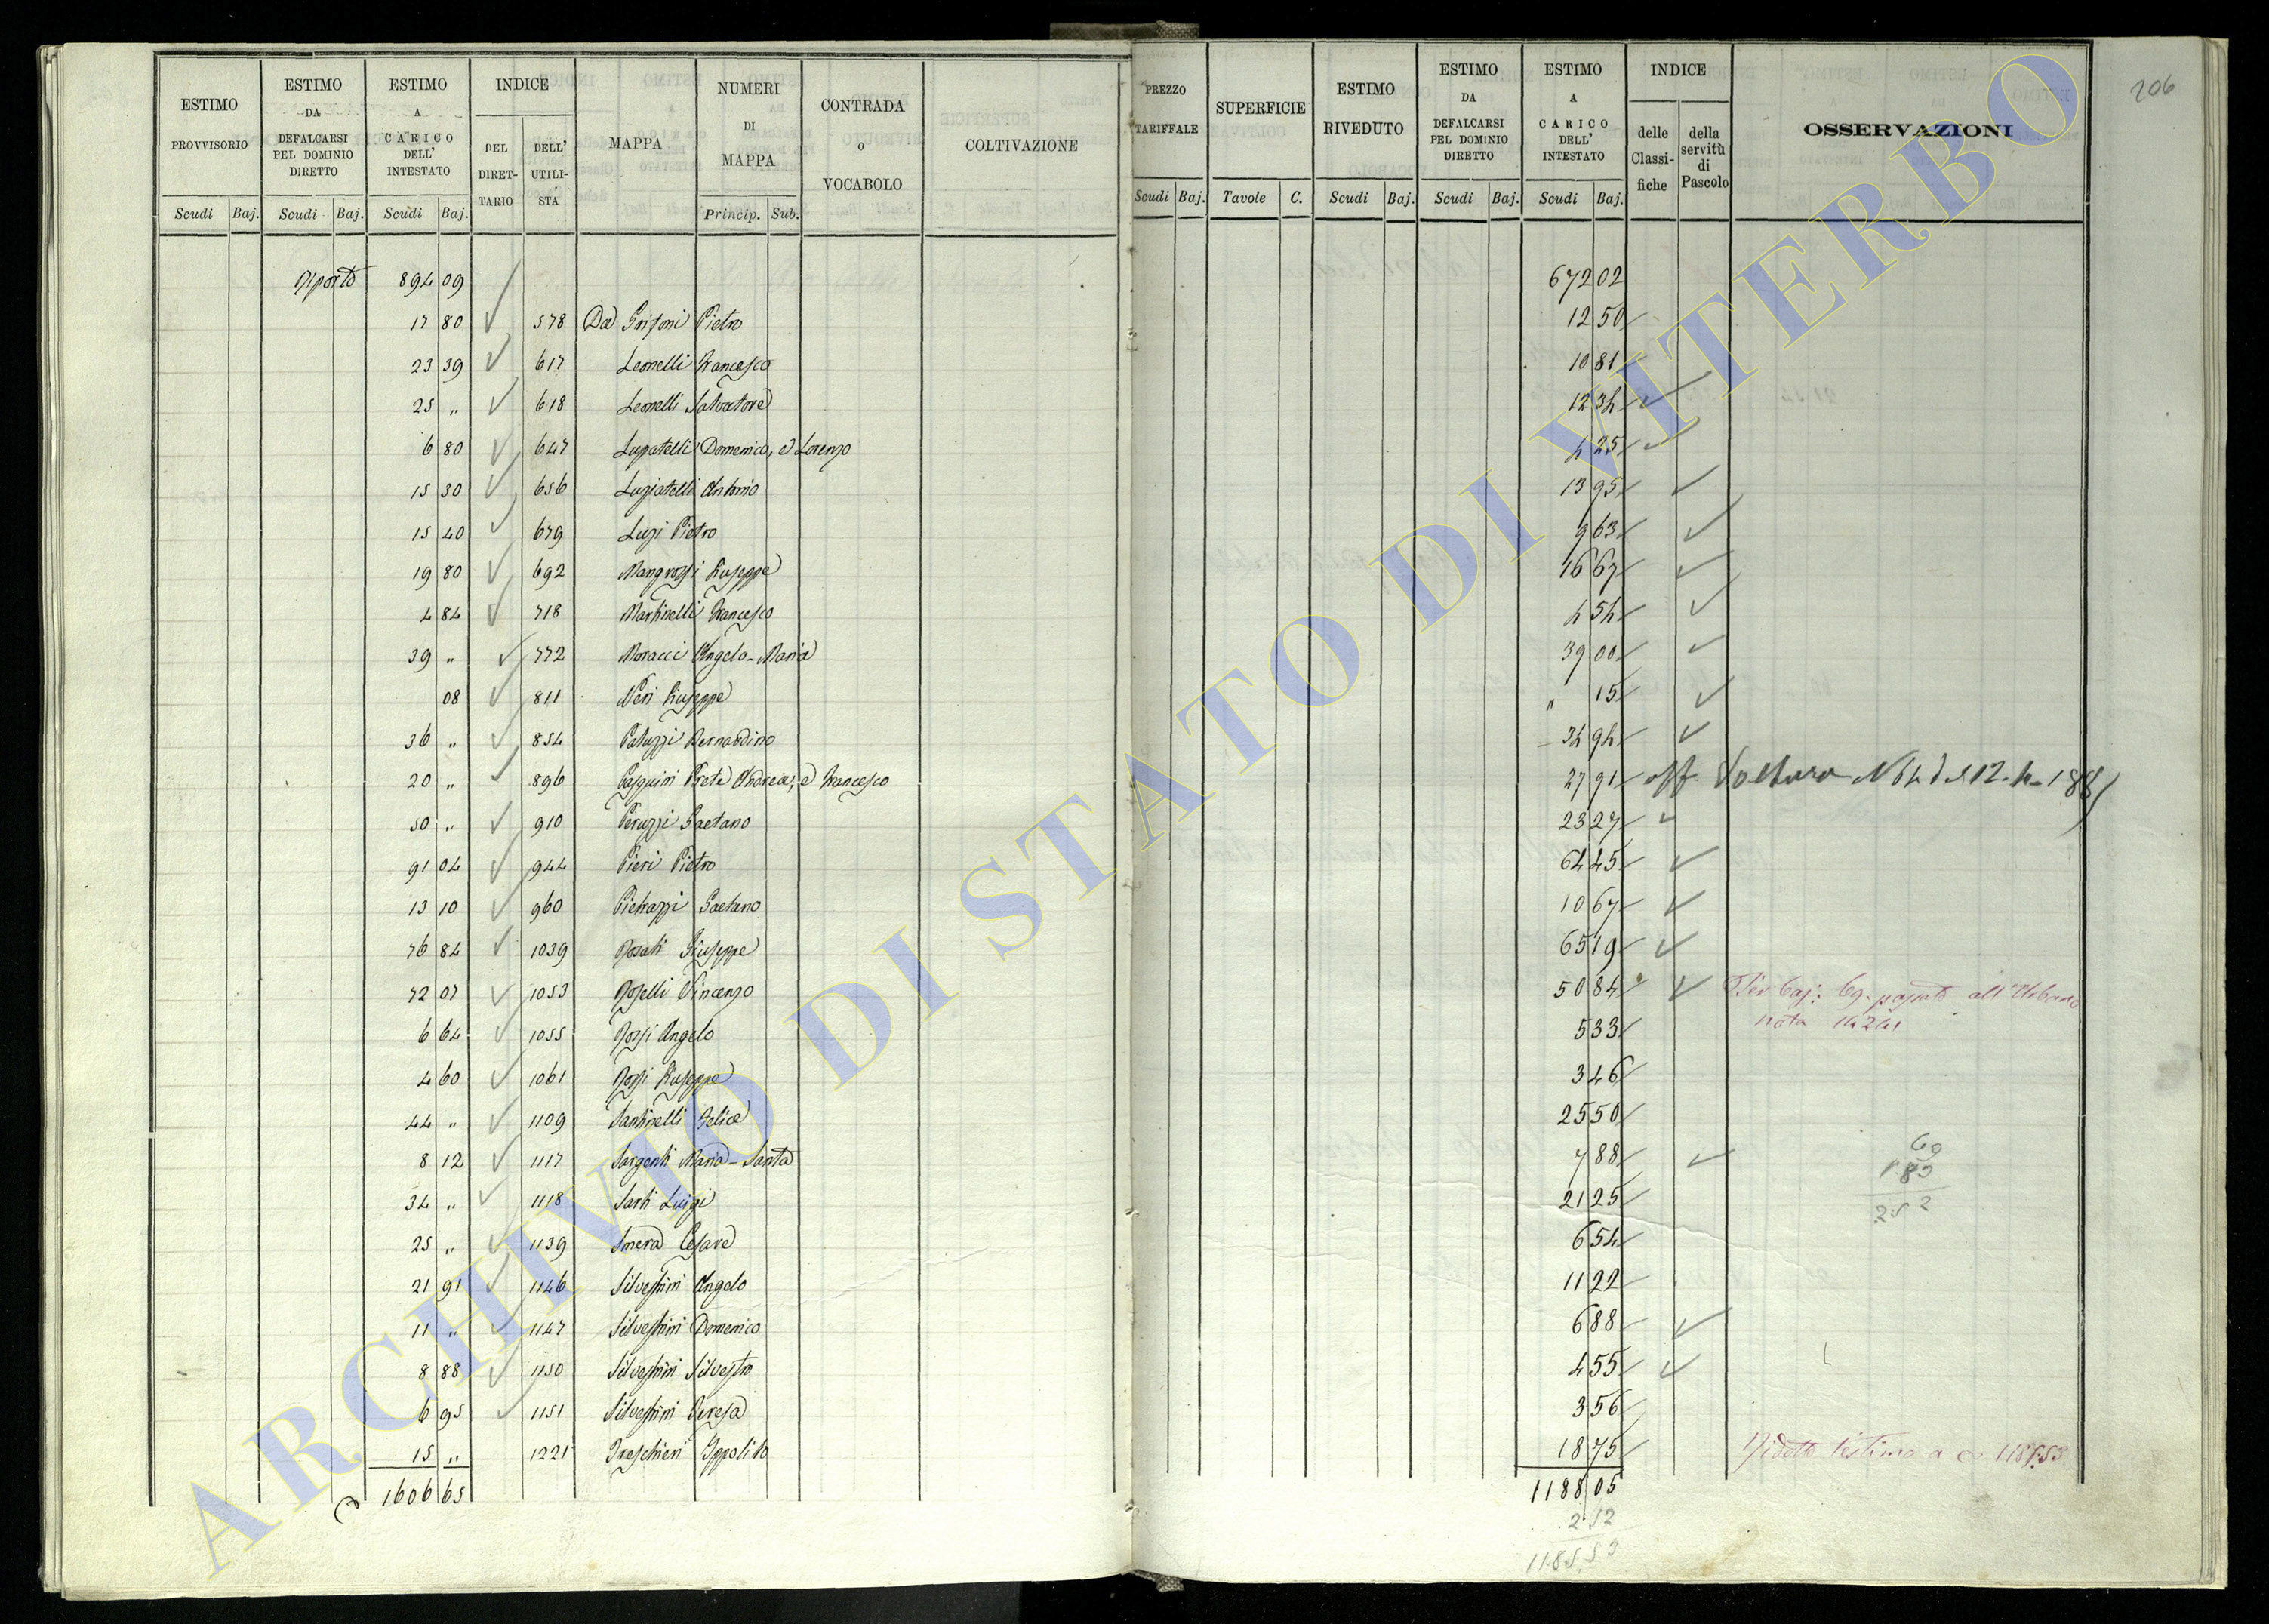 206
ESTIMO PROVVISORIO
ESTIMO DA DEFALCARSI PEL DOMINIO DIRETTO
ESTIMO A CARICO DELL' INTESTATO
INDICE
DEL DIRETTARIO
DELL' UTILISTA
MAPPA
NUMERI DI MAPPA
CONTRADA o VOCABOLO
COLTIVAZIONE
PREZZO TARIFFALE
SUPERFICIE
ESTIMO RIVEDUTO
ESTIMO DA DEFALCARSI PEL DOMINIO DIRETTO
ESTIMO A CARICO DELL' INTESTATO
INDICE
delle Classifiche
della servitù di Pascolo
OSSERVAZIONI
Scudi Baj. Scudi Baj. Scudi Baj. Princip. Sub. Scudi Baj. Tavole C. Scudi Baj. Scudi Baj. Scudi Baj.
Riporto 894 09 672 02
17 80 578 Da Grifoni Pietro 12 50
23 39 617 Leonelli Francesco 10 81
25 „ 618 Leonelli Salvatore 12 34
6 80 647 Lupatelli Domenico, e Lorenzo 4 25
15 30 656 Luziatelli Antonio 13 95
15 40 679 Luzi Pietro 9 63
19 80 692 Mangrossi Giuseppe 16 67
4 84 718 Martinelli Francesco 4 54
39 „ 772 Moracci Angelo-Maria 39 00
08 811 Neri Giuseppe „ 15
36 „ 854 Paluzzi Bernardino 34 94
20 „ 896 Pasquini Prete Andrea, e Francesco 27 91
50 „ 910 Peruzzi Gaetano 23 27
91 04 944 Pieri Pietro 64 45
13 10 960 Pietrazzi Gaetano 10 67
76 84 1039 Rosati Giuseppe 65 19
72 07 1053 Roselli Vincenzo 50 84 Per baj: 69. passato all'Urbano
nota
6 64 1055 Rossi Angelo 5 33
4 60 1061 Rossi Giuseppe 3 46
44 „ 1109 Santinelli Felice 25 50
8 12 1117 Sargenti Maria-Santa 7 88
69
1.83
2.52
34 „ 1118 Sarti Luigi 21 25
25 „ 1139 Cesare 6 54
21 91 1146 Silvestrini Angelo 11 22
11 „ 1147 Silvestrini Domenico 6 88
8 88 1150 Silvestrini Silvestro 4 55
6 95 1151 Silvestrini Teresa 3 56
15 „ 1221 Ippolito 18 75 Ridotto l'estimo a 1185.53
1606 65 1188 05
2 52
1185 53
ARCHIVIO DI STATO DI VITERBO